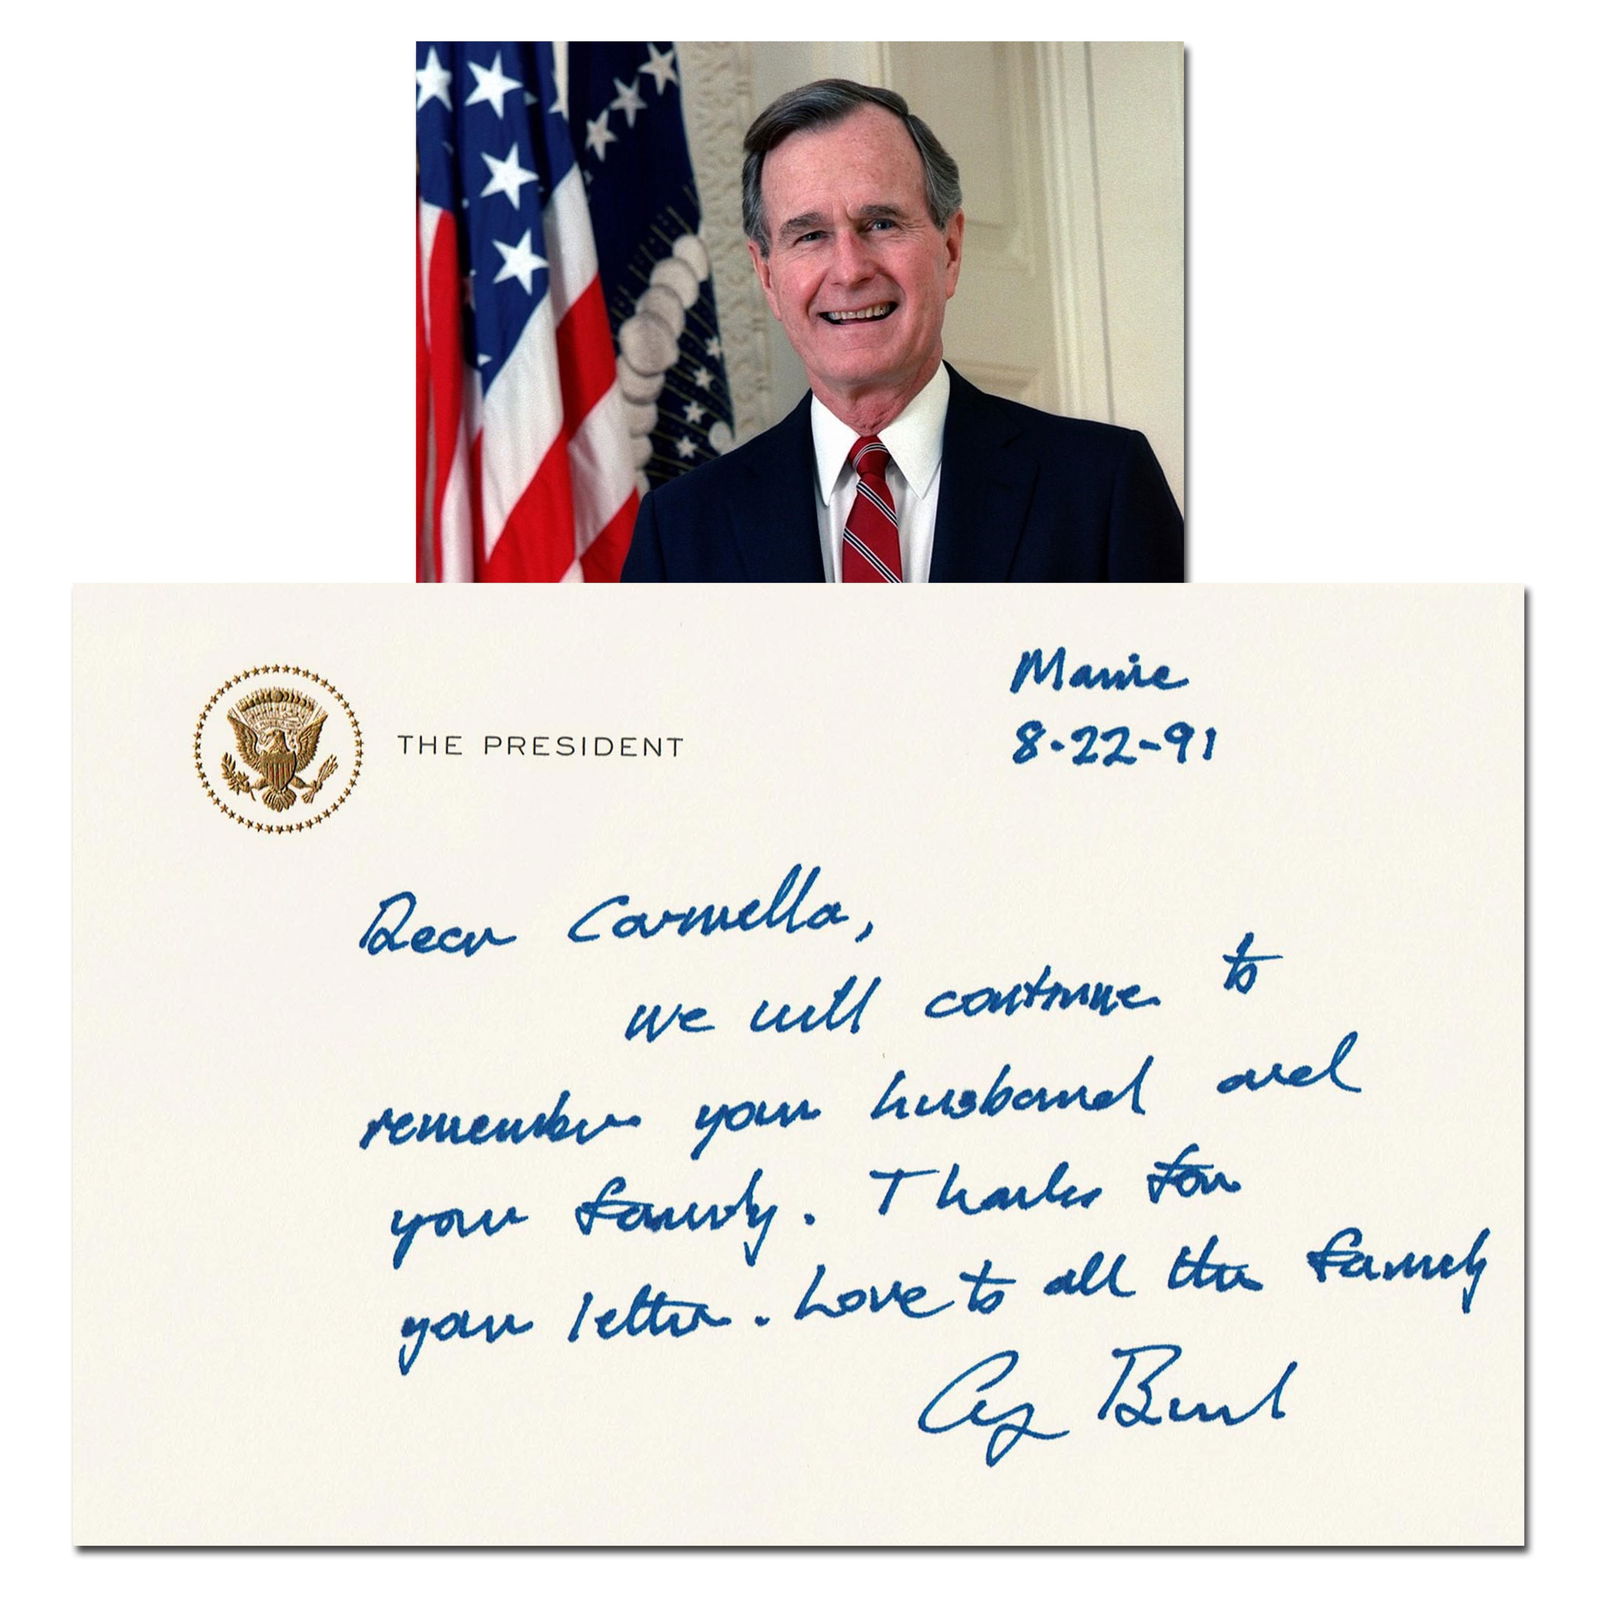 THE PRESIDENT
Maine
8-22-91
Dear Carmella,
we will continue to
remember your husband and
your family. Thanks for
your letter. Love to all the family
Gg Bush